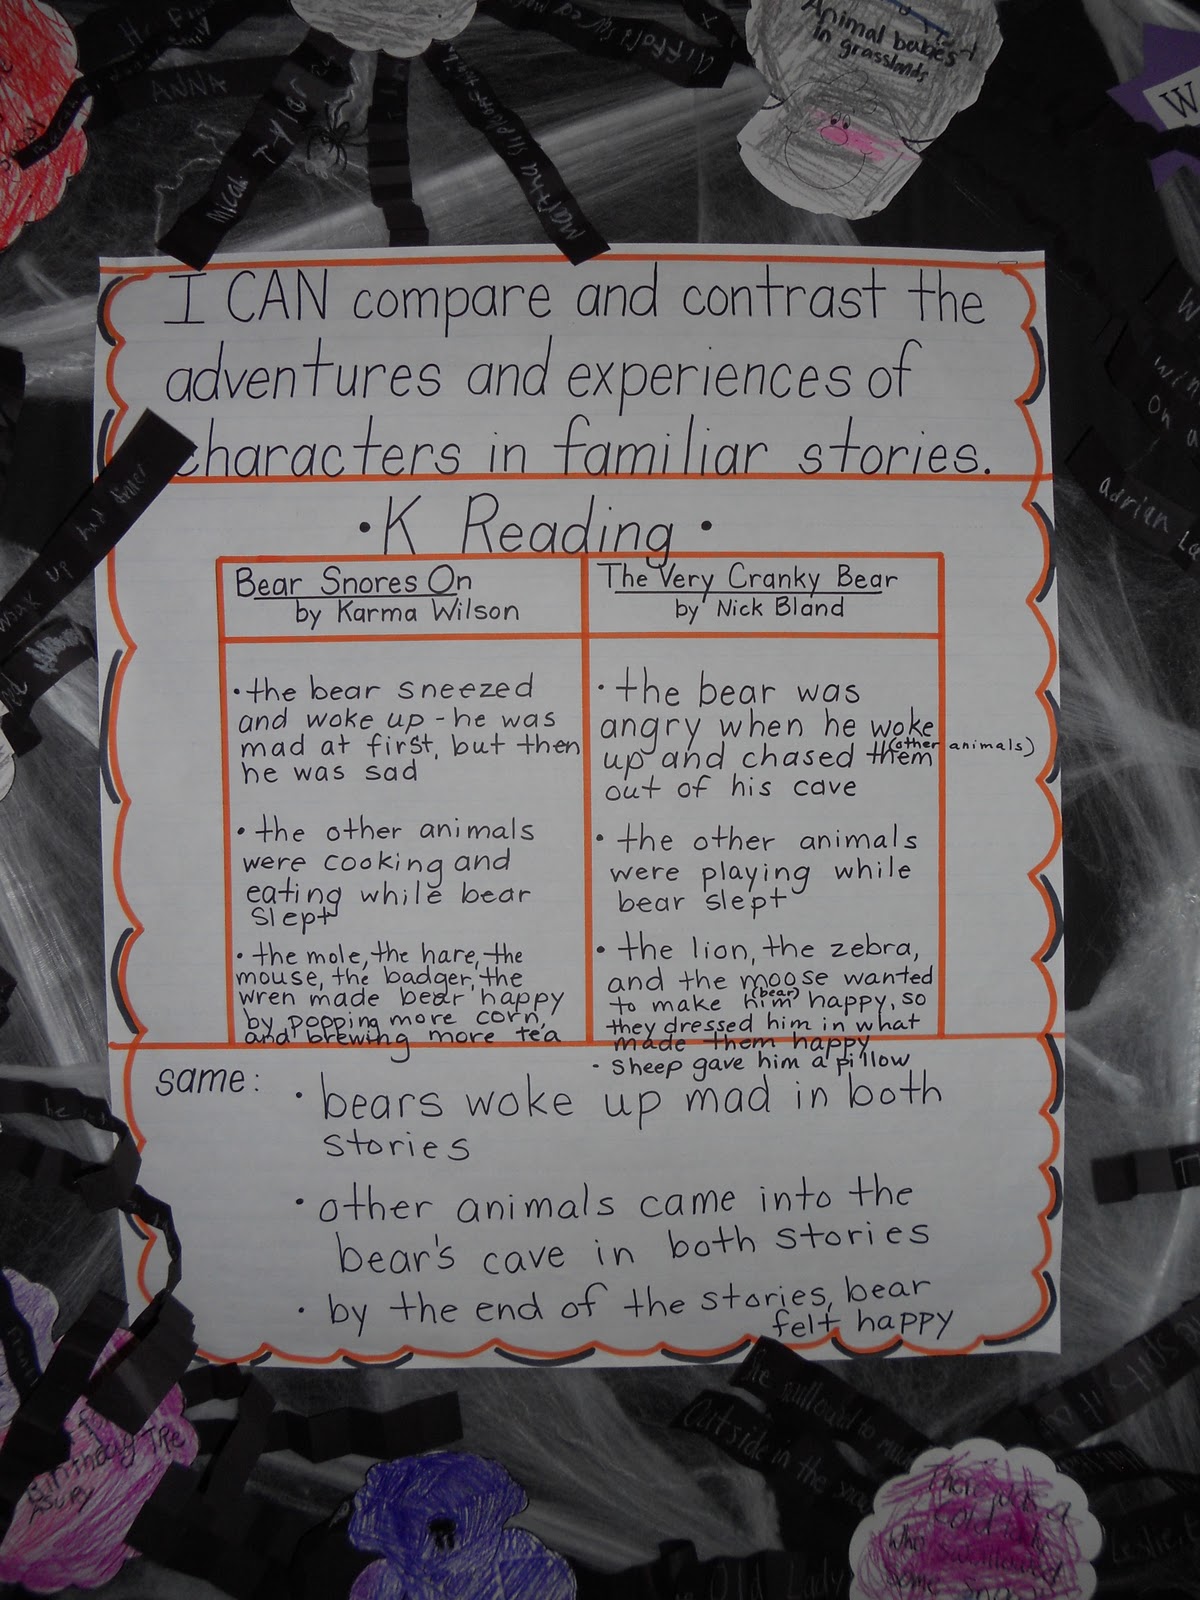 Animal babies
in grasslands
ANNA
Taylor
Micah
Martha
W
I CAN compare and contrast the
adventures and experiences of
characters in familiar stories.
• K Reading •
Bear Snores On
by Karma Wilson
• the bear sneezed
and woke up - he was
mad at first, but then
he was sad
• the other animals
were cooking and
eating while bear
slept
• the mole, the hare, the
mouse, the badger, the
wren made bear happy
by popping more corn,
and brewing more tea
The Very Cranky Bear
by Nick Bland
• the bear was
angry when he woke
up and chased them (other animals)
out of his cave
• the other animals
were playing while
bear slept
• the lion, the zebra,
and the moose wanted
to make him (bear) happy, so
they dressed him in what
made them happy
- sheep gave him a pillow
same:
• bears woke up mad in both
stories
• other animals came into the
bear's cave in both stories
• by the end of the stories, bear
felt happy
up
had
adrian
on a
outside in the snow
Birthday
Old Lady
Leslie